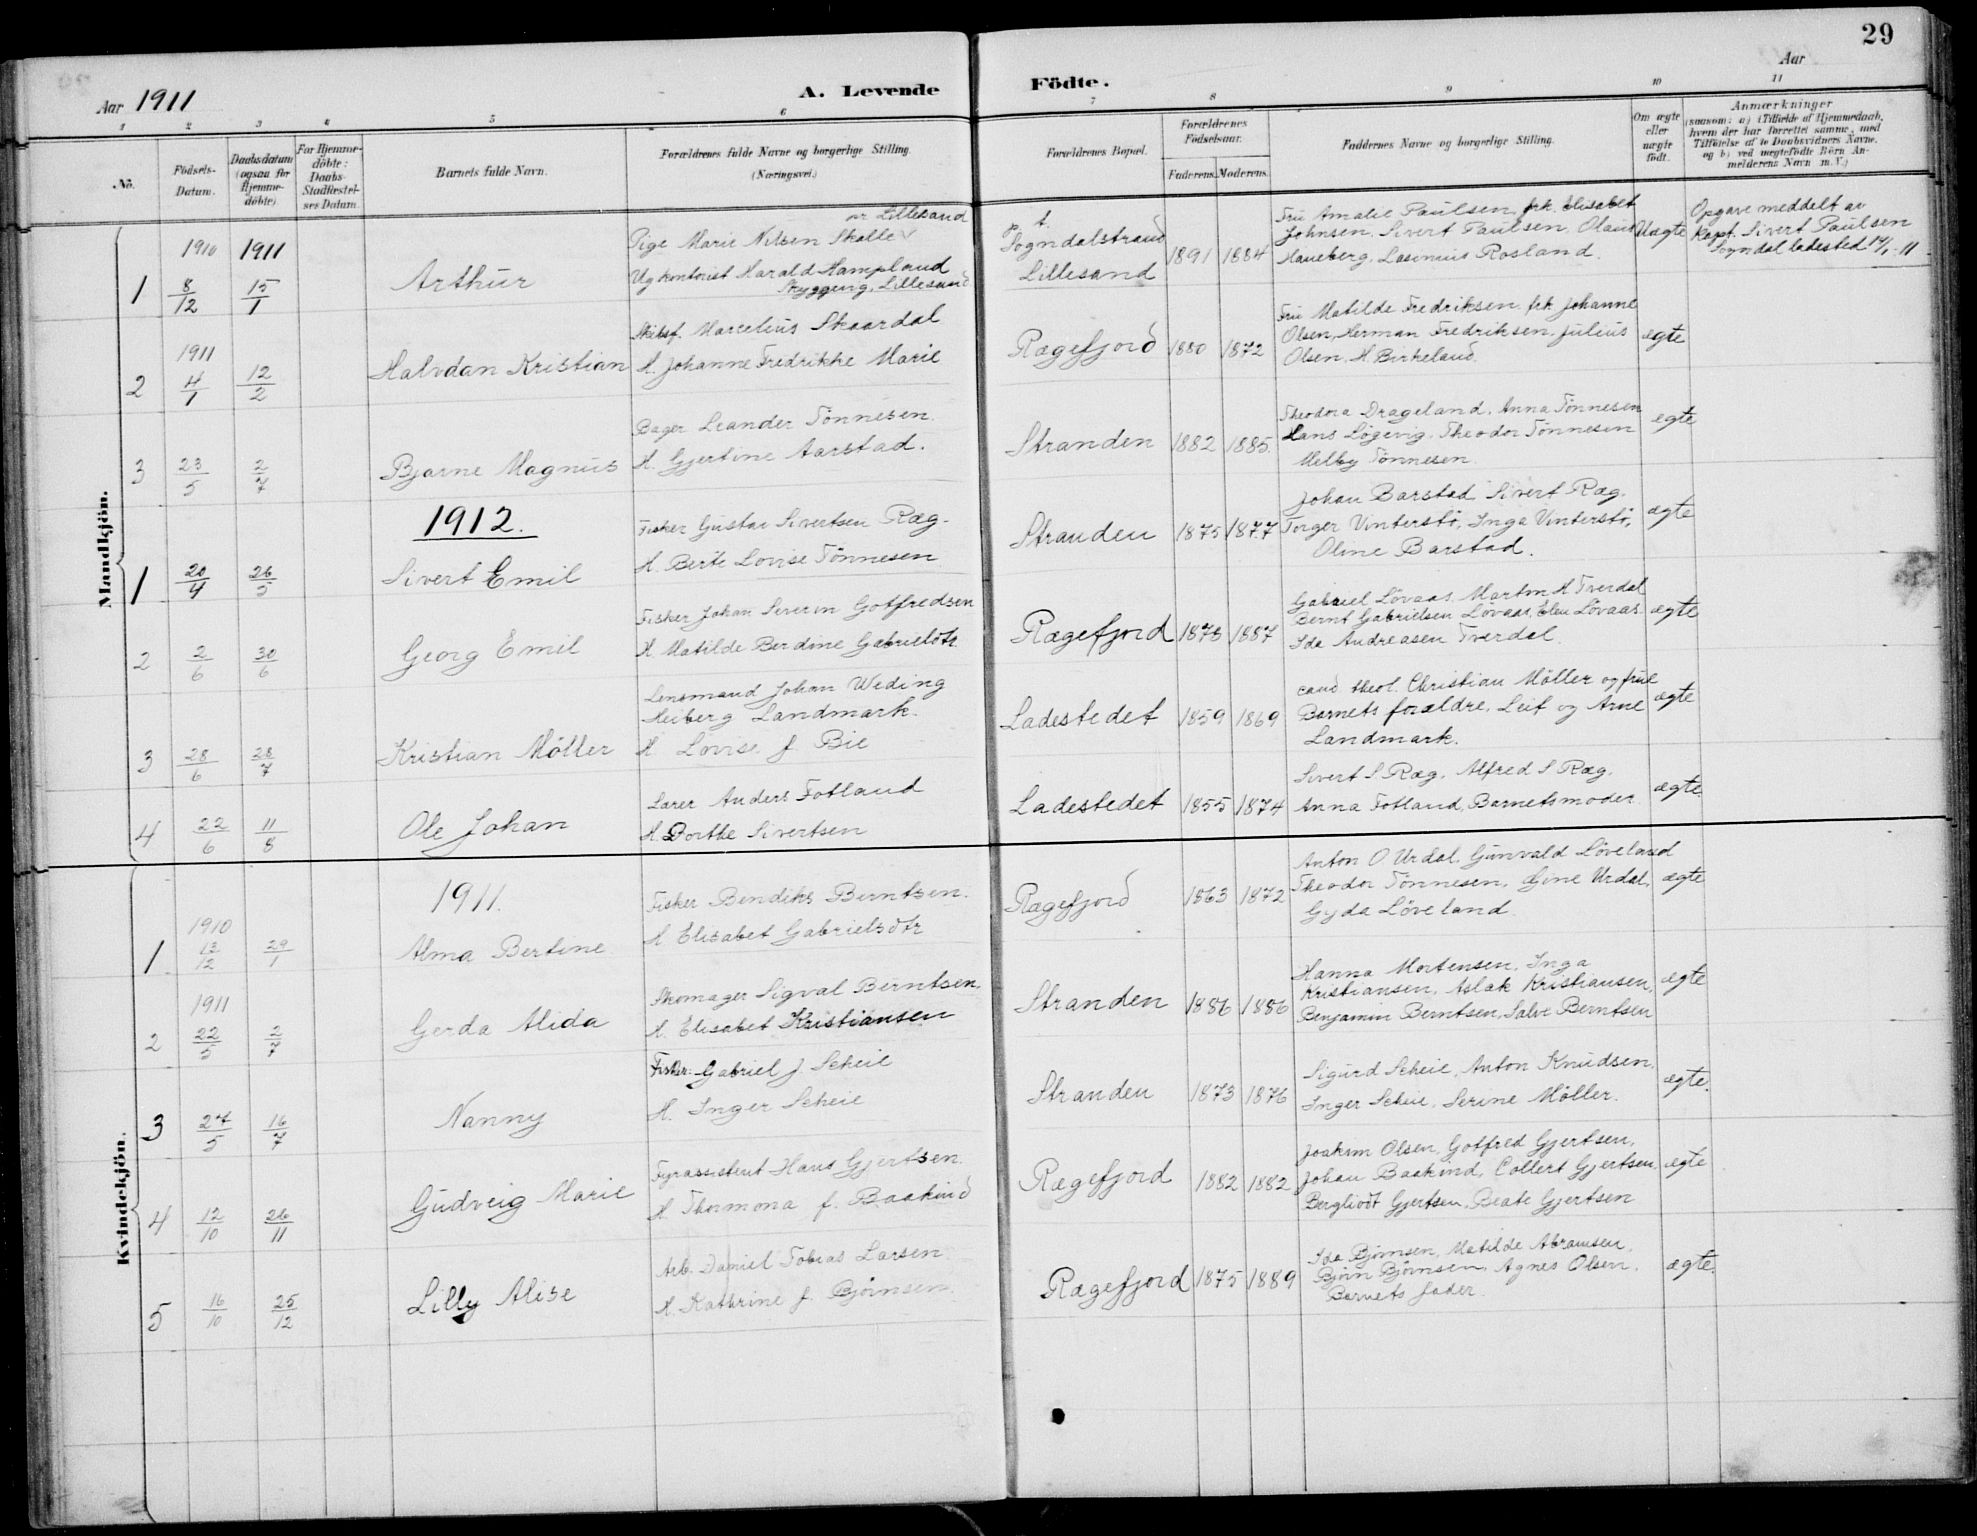 29
Aar 1911
A. Levende Födte.
Aar
1 2 3 4 5 6 7 8 9 10 11
No.
Födsels-Datum.
Daabsdatum (ogsaa for Hjemme-döbte)
For Hjemme-döbte: Daabs-Stadfæstel-ses Datum.
Barnets fulde Navn.
Forældrenes fulde Navne og borgerlige Stilling (Næringsvei.)
Forældrenes Bopæl.
Forældrenes Födselsaar.
Faderens. Moderens.
Faddernes Navne og borgerlige Stilling.
Om ægte eller uægte født.
Anmærkninger (saasom: a) i Tilfælde af Hjemmedaab, hvem der har forrettet samme, med Tilföielse af to Daabsvidners Navne, og b) ved uægtefödte Börn An-melderens Navn m.V.)
Mandkjön.
1910 1911
av Lillesand
Pige Marie Nilsen Skalle
Ug kontorist Harald Hampland
Skyggeng, Lillesand
1 8/12 15/1 Arthur
p. t.
Sogndalstrand
Lillesand
1891 1884
Fru Amalie Paulsen, frk. Elisabet
Johnsen, Sivert Paulsen, Olaus
Haneberg, Lasinius Rosland.
Uægte
Opgave meddelt av
Kapt. Sivert Paulsen
Sogndal ladested 14/1 11
1911
2 4/1 12/2 Halvdan Kristian
Skibsf. Marcelius Skaardal
H. Johanne Fredrikke Marie
Rægefjord 1880 1872
Fru Matilde Fredriksen, frk Johanne
Olsen, Herman Fredriksen, Julius
Olsen, H. Birkeland.
ægte
3 23/5 2/7 Bjarne Magnus
Bager Leander Tönnesen.
H. Gjertine Aarstad.
Stranden 1882 1885.
Theodora Drageland, Anna Tönnesen
Hans Lögevig, Theodor Tönnesen
Melby Tönnesen.
ægte
1912.
1 20/4 26/5 Sivert Emil
Fisker Gustav Sivertsen Ræg.
H. Berte Lovise Tönnesen
Stranden 1875 1877
Johan Barstad Sivert Ræg.
Torger Vinterstö, Inga Vinterstö,
Oline Barstad.
ægte
2 2/6 30/6 Georg Emil
Fisker Johan Severin Gotfredsen
H. Matilde Berdine Gabrielsdtr.
Rægefjord 1878 1887
Gabriel Lövaas, Martin H Tverdal
Bernt Gabrielsen Lövaas, Elen Lövaas
Ida Andreasen Tverdal.
ægte
3 28/6 28/7 Kristian Möller
Lensmand Johan Weding
Heiberg Landmark.
H. Lovise f Bie
Ladestedet 1859 1869
cand. theol. Christian Möller og frue
Barnets forældre, Leif og Arne
Landmark.
ægte
4 22/6 11/8 Ole Johan
Lærer Anders Fotland
H. Dorthe Sivertsen
Ladestedet 1855 1874
Sivert S Ræg. Alfred S Ræg.
Anna Fotland, Barnets moder
ægte.
Kvindekjön.
1911.
1910
1 13/12 29/1 Alma Bertine
Fisker Bendiks Berntsen.
H Elisabet Gabrielsdtr
Rægefjord 1863 1872
Anton O Urdal, Gunvald Löveland
Theodor Tönnesen, Gine Urdal,
Gyda Löveland.
ægte
1911
2 22/5 2/7 Gerda Alida
Skomager Sigval Berntsen,
H. Elisabet Kristiansen
Stranden 1886 1886
Hanna Mortensen, Inga
Kristiansen, Aslak Kristiansen,
Benjamin Berntsen, Salve Berntsen
ægte
3 24/5 16/7 Nanny
Fisker: Gabriel J. Scheie
H. Inger Scheie
Stranden 1873 1876
Sigurd Scheie, Anton Knudsen.
Inger Scheie, Serine Möller.
ægte.
4 12/10 26/11 Gudveig Marie
Fyrassistent Hans Gjertsen.
H. Thormona f. Baakind
Rægefjord 1882 1882
Joakim Olsen, Gotfred Gjertsen,
Johan Baakind, Collert Gjertsen,
Bergliodt Gjertsen, Beate Gjertsen
ægte
5 16/10 25/12 Lilly Alise
Arb. Daniel Tobias Larsen
H. Kathrine f. Bjørnsen.
Rægefjord 1875 1889
Ida Bjørnsen, Matilde Abramsen,
Bjørn Bjørnsen, Agnes Olsen,
Barnets fader.
ægte.